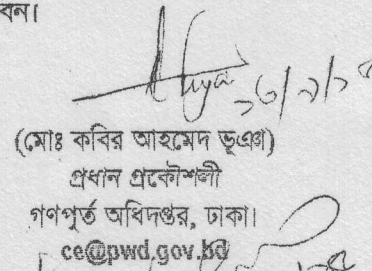 বন।
(মোঃ কবির আহমেদ ভূঞা)
প্রধান প্রকৌশলী
গণপূর্ত অধিদপ্তর, ঢাকা।
ce@pwd.gov.bd